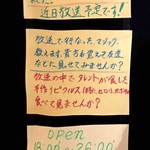 近日放送予定です!
放送で行なった、マジック、
教えます。貴方も覚えて友達
などに見せてみませんか?
放送の中でタレントが食した
手作りピクルス(
食べて見ませんか?
OPEN
18:00〜26:00